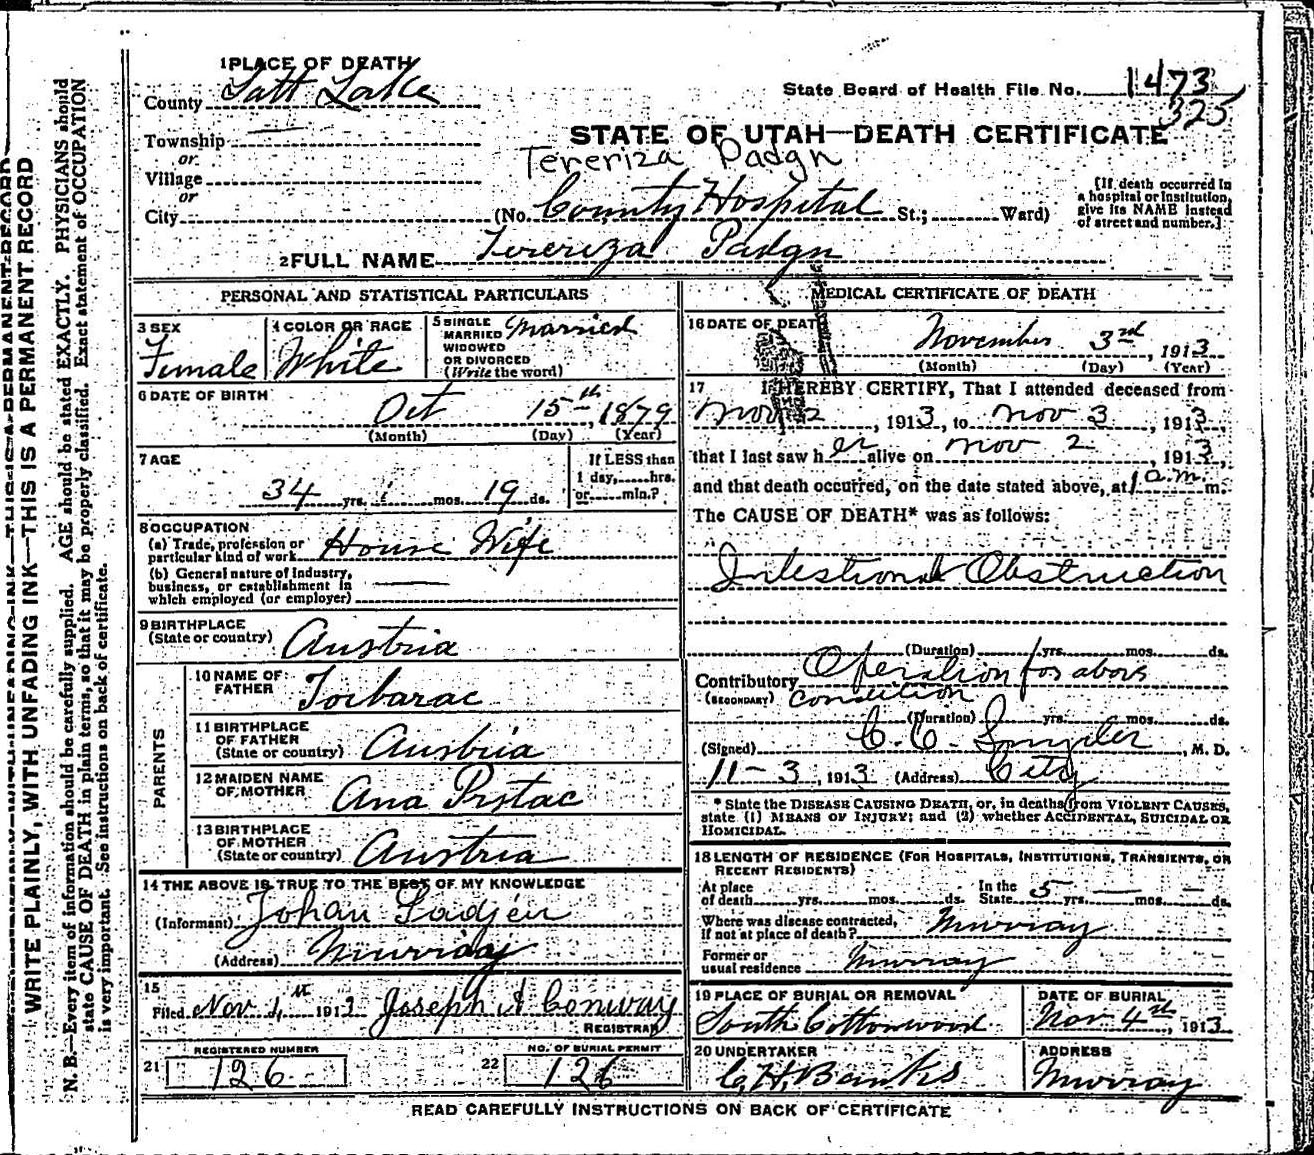 WRITE PLAINLY, WITH UNFADING INK—THIS IS A PERMANENT RECORD
N. B.—Every item of information should be carefully supplied. AGE should be stated EXACTLY. PHYSICIANS should
state CAUSE OF DEATH in plain terms, so that it may be properly classified. Exact statement of OCCUPATION
is very important. See instructions on back of certificate.
1 PLACE OF DEATH
County Salt Lake
Township —
or
Village
or
City
State Board of Health File No. 1473
325
STATE OF UTAH—DEATH CERTIFICATE
Tereriza Padgn
(No. County Hospital St.; Ward)
[If death occurred in
a hospital or institution,
give its NAME instead
of street and number.]
2 FULL NAME Tereriza Padgn
PERSONAL AND STATISTICAL PARTICULARS
3 SEX
Female
4 COLOR OR RACE
White
5 SINGLE
MARRIED
WIDOWED
OR DIVORCED
(Write the word)
Married
6 DATE OF BIRTH
Oct 15th, 1879
(Month) (Day) (Year)
7 AGE
34 yrs. mos. 19 ds.
If LESS than
1 day, hrs.
or min.?
8 OCCUPATION
(a) Trade, profession or
particular kind of work House Wife
(b) General nature of Industry,
business, or establishment in
which employed (or employer) —
9 BIRTHPLACE
(State or country) Austria
PARENTS
10 NAME OF
FATHER Torbarac
11 BIRTHPLACE
OF FATHER
(State or country) Austria
12 MAIDEN NAME
OF MOTHER Ana Prstac
13 BIRTHPLACE
OF MOTHER
(State or country) Austria
14 THE ABOVE IS TRUE TO THE BEST OF MY KNOWLEDGE
(Informant) Johan Ladjen
(Address) Murray
15
Filed Nov 4th 1913 Joseph A Conway
REGISTRAR
21 REGISTERED NUMBER
126
22 NO. OF BURIAL PERMIT
126
MEDICAL CERTIFICATE OF DEATH
16 DATE OF DEATH
November 3rd, 1913
(Month) (Day) (Year)
17 I HEREBY CERTIFY, That I attended deceased from
Nov 2, 1913, to Nov 3, 1913,
that I last saw her alive on Nov 2, 1913,
and that death occurred, on the date stated above, at 1 a.m. m.
The CAUSE OF DEATH* was as follows:
Intestional Obstruction
(Duration) yrs. mos. ds.
Contributory Operation for above
(SECONDARY) condition
(Duration) yrs. mos. ds.
(Signed) C. C. Snyder, M. D.
11-3, 1913 (Address) City
* State the DISEASE CAUSING DEATH, or, in deaths from VIOLENT CAUSES,
state (1) MEANS OF INJURY; and (2) whether ACCIDENTAL, SUICIDAL OR
HOMICIDAL.
18 LENGTH OF RESIDENCE (FOR HOSPITALS, INSTITUTIONS, TRANSIENTS, OR
RECENT RESIDENTS)
At place
of death yrs. mos. ds.
In the
State 5 yrs. — mos. — ds.
Where was disease contracted,
If not at place of death? Murray
Former or
usual residence Murray
19 PLACE OF BURIAL OR REMOVAL
South Cottonwood
DATE OF BURIAL
Nov 4th, 1913
20 UNDERTAKER
C. H. Banks
ADDRESS
Murray
READ CAREFULLY INSTRUCTIONS ON BACK OF CERTIFICATE